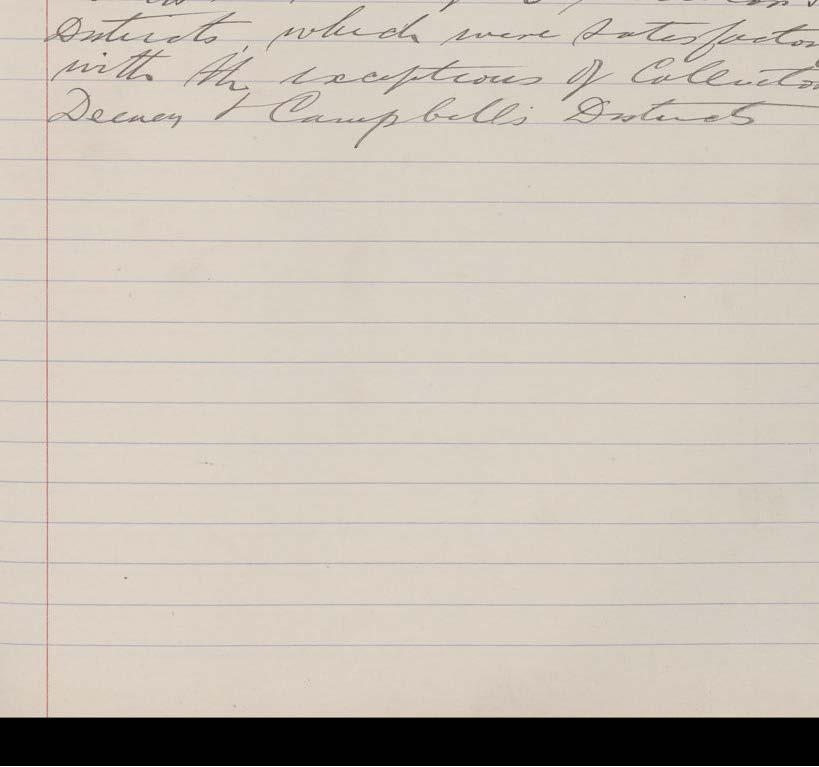 Districts, which were satisfactory
with the exceptions of Collector
Deeney & Campbells Districts